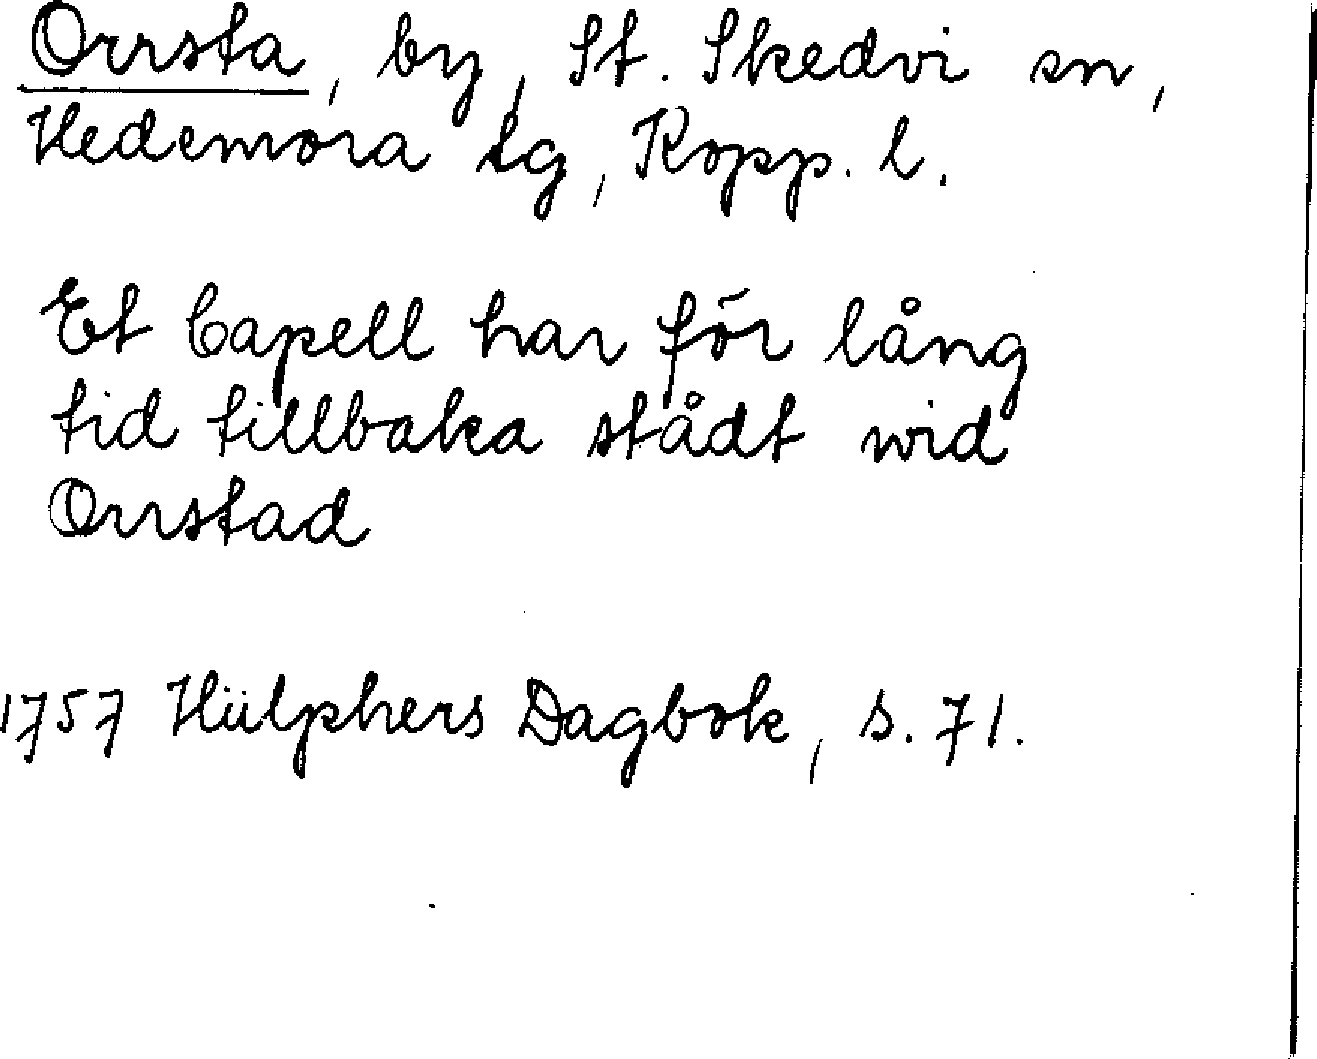 Orrsta, by, St. Skedvi sn,
Hedemora tg, Kopp. l.
Et Capell har för lång
tid tillbaka stådt wid
Orrstad
1757 Hülphers Dagbok, s. 71.